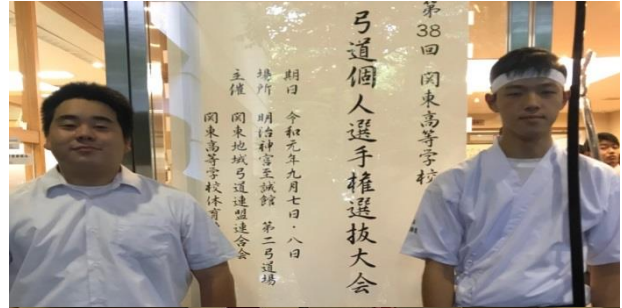 第38回 関東高等学校
弓道個人選手権選抜大会
期日 令和元年九月七日・八日
場所 明治神宮至誠館 第二弓道場
主催 関東地域弓道連盟連合会
関東高等学校体育